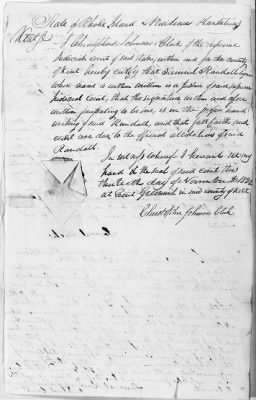 State of Rhode Island & Providence Plantations
Kent ss
I Christopher Johnson Clerk of the supreme
Judicial court of said state, within and for the county
of Kent hereby certify that Samuel Randall Esquire
whose name is within written is a justice of said supreme
Judicial Court, that the signature within and above
written purporting to be his, is in the proper hand
writing of said Randall, and that full faith and
credit are due to the official attestations of said
Randall.
In witness whereof I hereunto set my
hand & the seal of said court this
day of
at East Greenwich in said county of Kent
Christopher Johnson Clerk